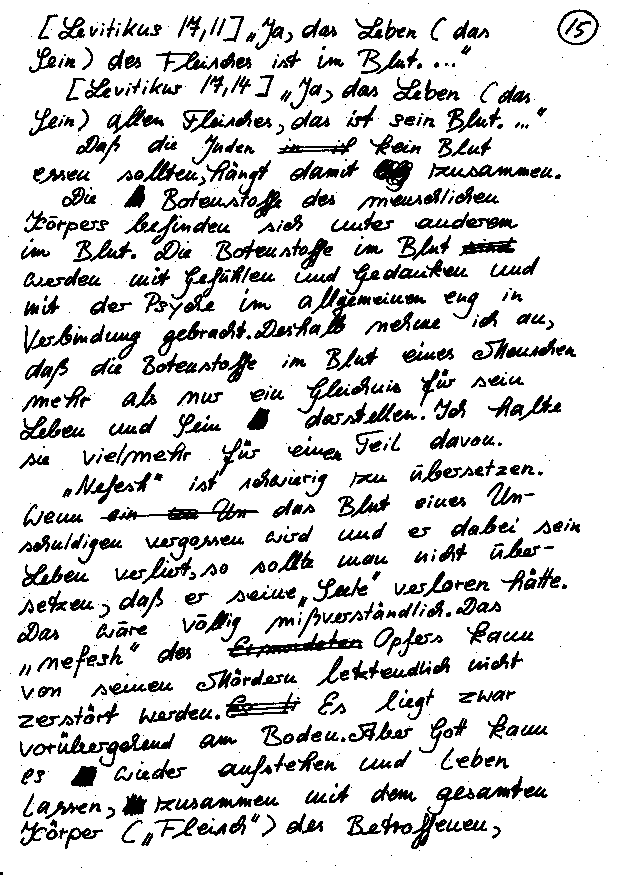 [Levitikus 17,11] „Ja, das Leben (das
15
Sein) des Fleisches ist im Blut. ..."
[Levitikus 17,14] „Ja, das Leben (das
Sein) allen Fleisches, das ist sein Blut. ..."
Daß die Juden kein Blut
essen sollten, hängt damit zusammen.
Die Botenstoffe des menschlichen
Körpers befinden sich unter anderem
im Blut. Die Botenstoffe im Blut sind
werden mit Gefühlen und Gedanken und
mit der Psyche im allgemeinen eng in
Verbindung gebracht. Deshalb nehme ich an,
daß die Botenstoffe im Blut eines Menschen
mehr als nur ein Gleichnis für sein
Leben und Sein darstellen. Ich halte
sie vielmehr für einen Teil davon.
„Nefesh" ist schwierig zu übersetzen.
Wenn ein zu Un das Blut eines Un-
schuldigen vergossen wird und er dabei sein
Leben verliert, so sollte man nicht über-
setzen, daß er seine „Seele" verloren hätte.
Das wäre völlig mißverständlich. Das
„nefesh" des Ermordeten Opfers kann
von seinen Mördern letztendlich nicht
zerstört werden. Es liegt zwar
vorübergehend am Boden. Aber Gott kann
es wieder aufstehen und leben
lassen, zusammen mit dem gesamten
Körper („Fleisch") des Betroffenen,